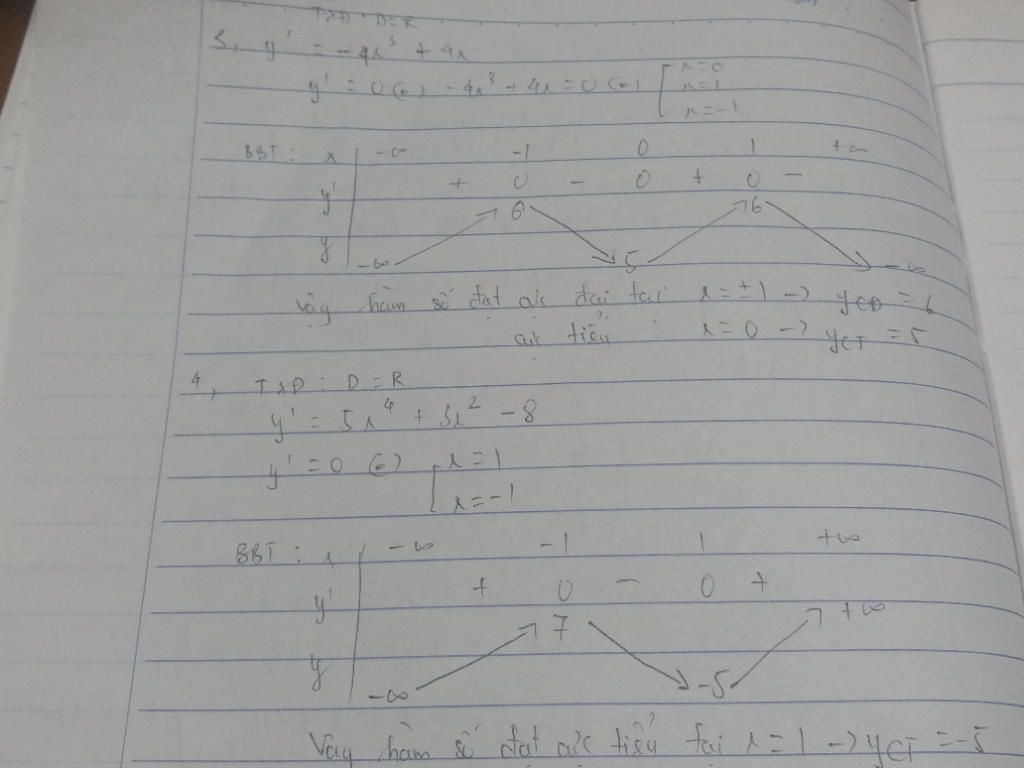 TXĐ: D=R
3, y' = -4x³ + 4x
y' = 0 (=) -4x³ + 4x = 0 (=) [ x=0
x=1
x=-1
BBT: x | -∞ -1 0 1 +∞
y' + 0 - 0 + 0 -
6 6
y -∞ 5 -∞
Vậy hàm số đạt cực đại tại x=±1 -> yCĐ = 6
cực tiểu x=0 -> yCT = 5
4, TXĐ: D=R
y' = 5x⁴ + 3x² - 8
y' = 0 (=) [ x=1
x=-1
BBT: x | -∞ -1 1 +∞
y' + 0 - 0 +
7 +∞
y -∞ -5
Vậy hàm số đạt cực tiểu tại x=1 -> yCT = -5